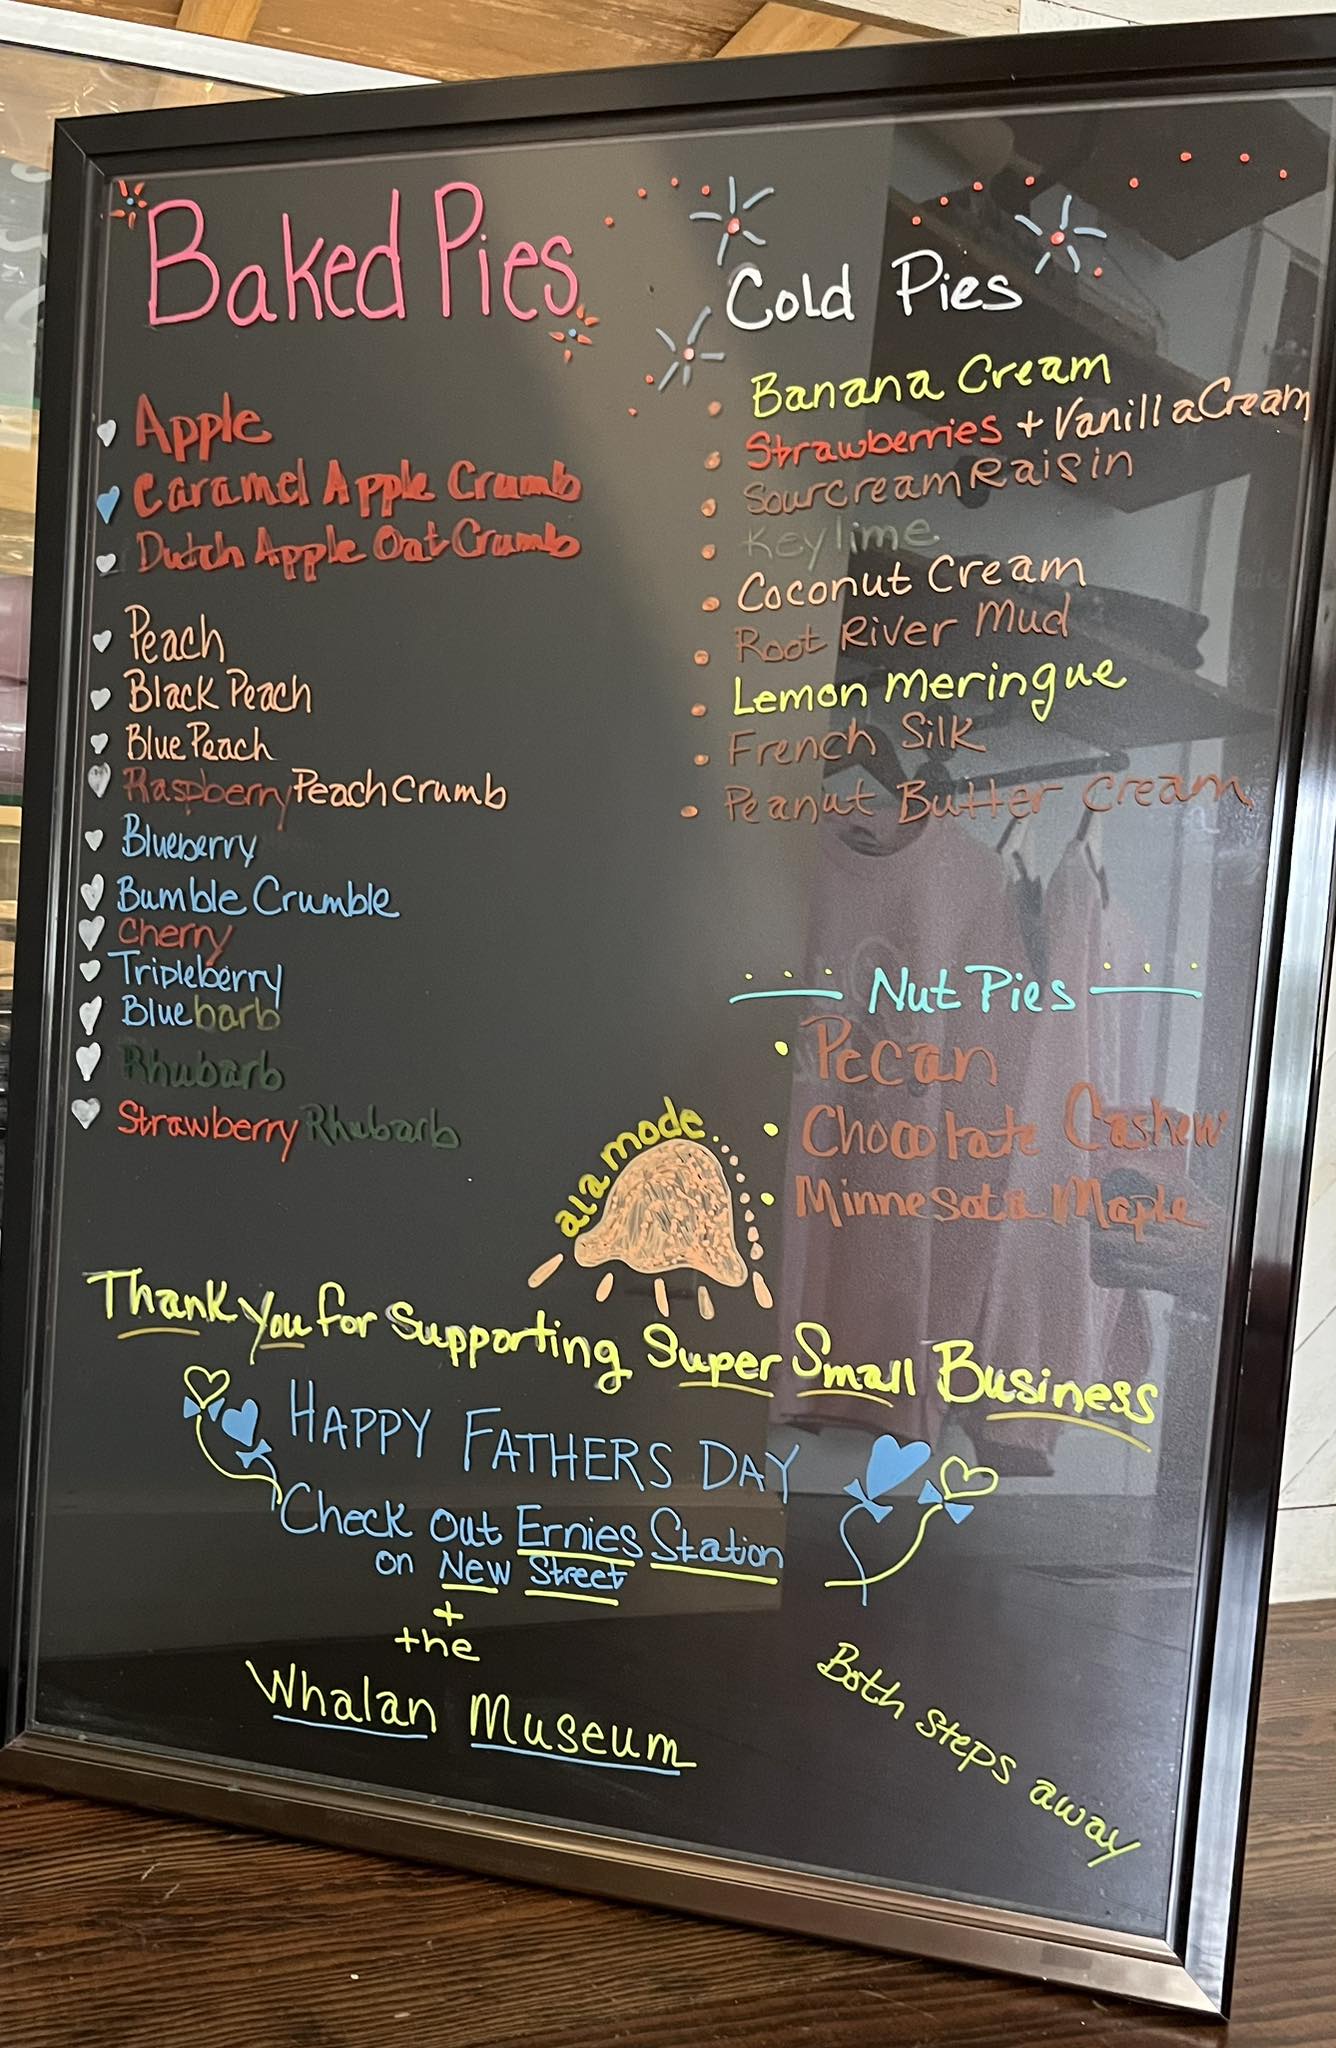 Baked Pies
Apple
Caramel Apple Crumb
Dutch Apple Oat Crumb
Peach
Black Peach
Blue Peach
Raspberry Peach Crumb
Blueberry
Bumble Crumble
Cherry
Tripleberry
Bluebarb
Rhubarb
Strawberry Rhubarb
Cold Pies
Banana Cream
Strawberries + Vanilla Cream
Sourcream Raisin
Keylime
Coconut Cream
Root River Mud
Lemon Meringue
French Silk
Peanut Butter Cream
Nut Pies
Pecan
Chocolate Cashew
Minnesota Maple
ala mode...
Thank you for Supporting Super Small Business
HAPPY FATHERS DAY
Check out Ernies Station
on New Street
+
the
Whalan Museum
Both steps away